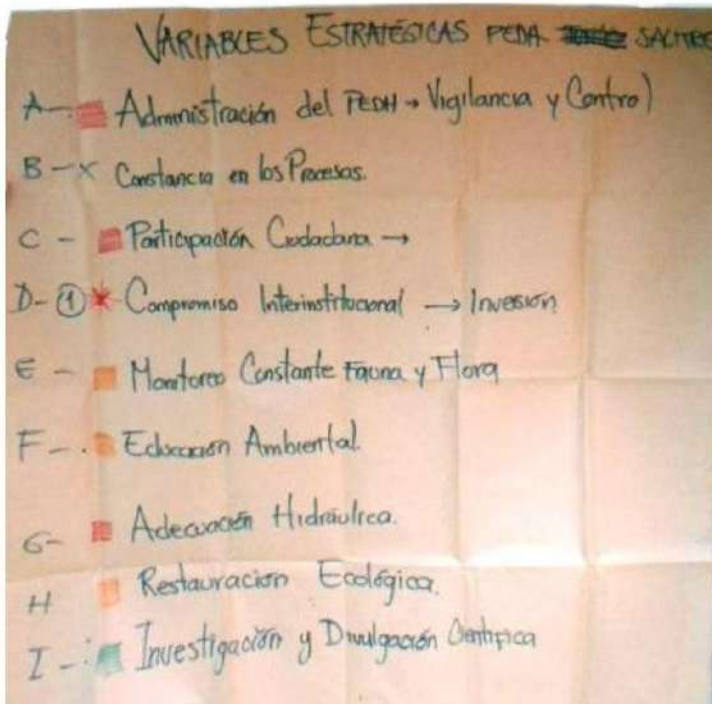 VARIABLES ESTRATÉGICAS PEDH SALITRE
A- Administración del PEDH → Vigilancia y Control
B - x Constancia en los Procesos.
C - Participación Ciudadana →
D- ① * Compromiso Interinstitucional → Inversión
E - Monitoreo Constante Fauna y Flora
F- . Educación Ambiental.
G- Adecuación Hidráulica.
H Restauración Ecológica.
I - : Investigación y Divulgación Científica